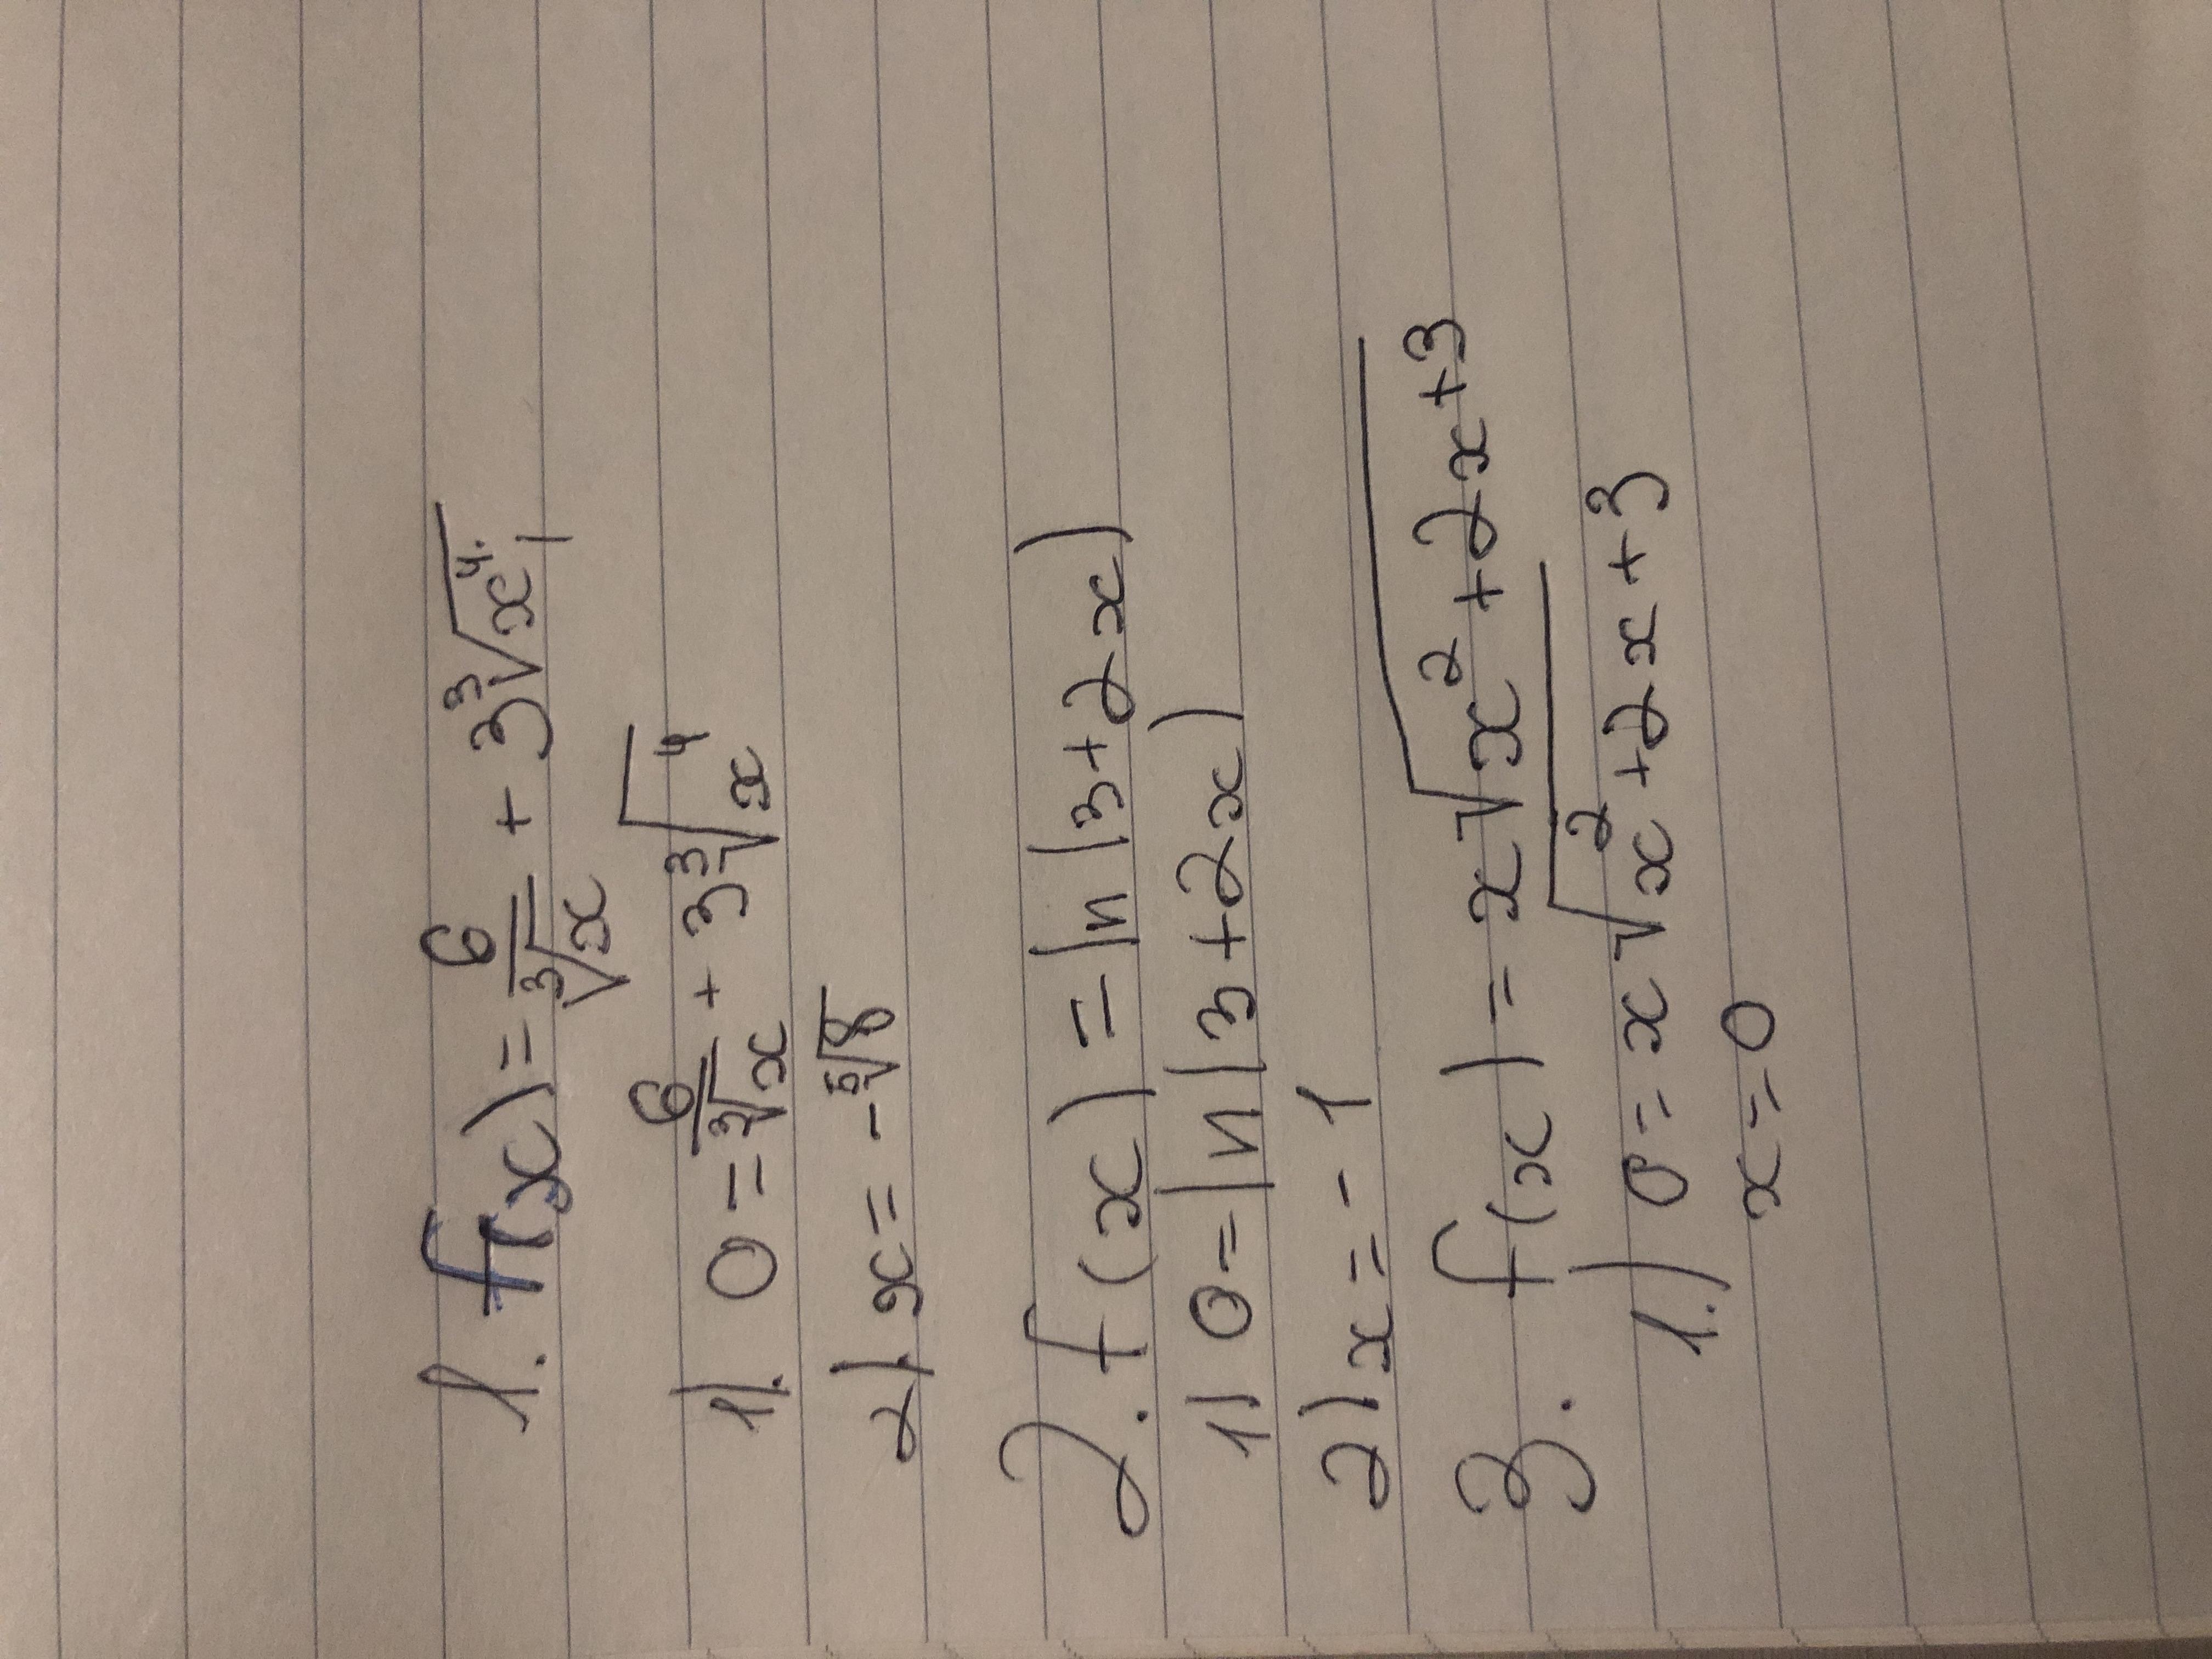 1. f(x) = 6/∛x + 3∛x⁴
1). 0 = 6/∛x + 3∛x⁴
2) x = -⁵√8
2. f(x) = ln(3+2x)
1) 0 = ln(3+2x)
2) x = -1
3. f(x) = x√(x²+2x+3)
1.) 0 = x√(x²+2x+3)
x = 0